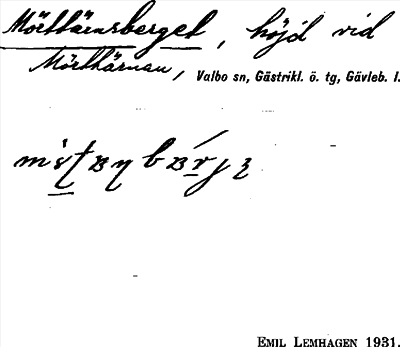 Mörttärnsberget, höjd vid
Mörttärnan, Valbo sn, Gästrikl. ö. tg, Gävleb. l.
EMIL LEMHAGEN 1931.